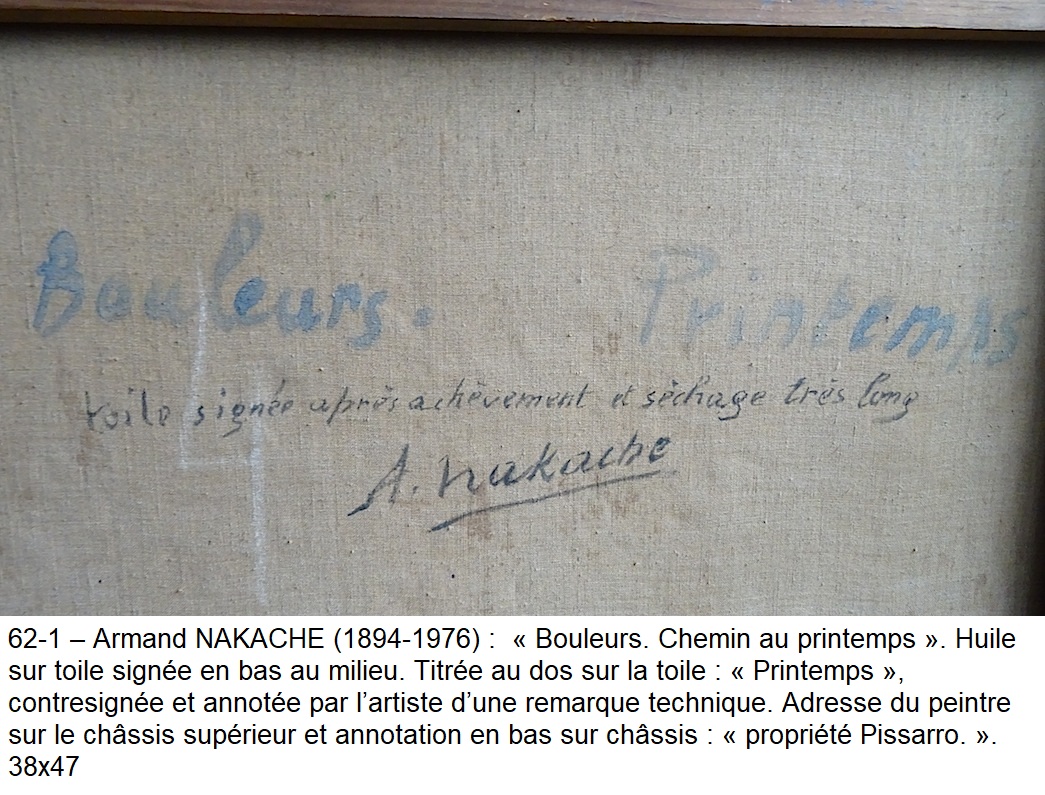 Bouleurs. Printemps
4
toile signée après achèvement et séchage très long
A. Nakache
62-1 – Armand NAKACHE (1894-1976) :  « Bouleurs. Chemin au printemps ». Huile
sur toile signée en bas au milieu. Titrée au dos sur la toile : « Printemps »,
contresignée et annotée par l’artiste d’une remarque technique. Adresse du peintre
sur le châssis supérieur et annotation en bas sur châssis : « propriété Pissarro. ».
38x47